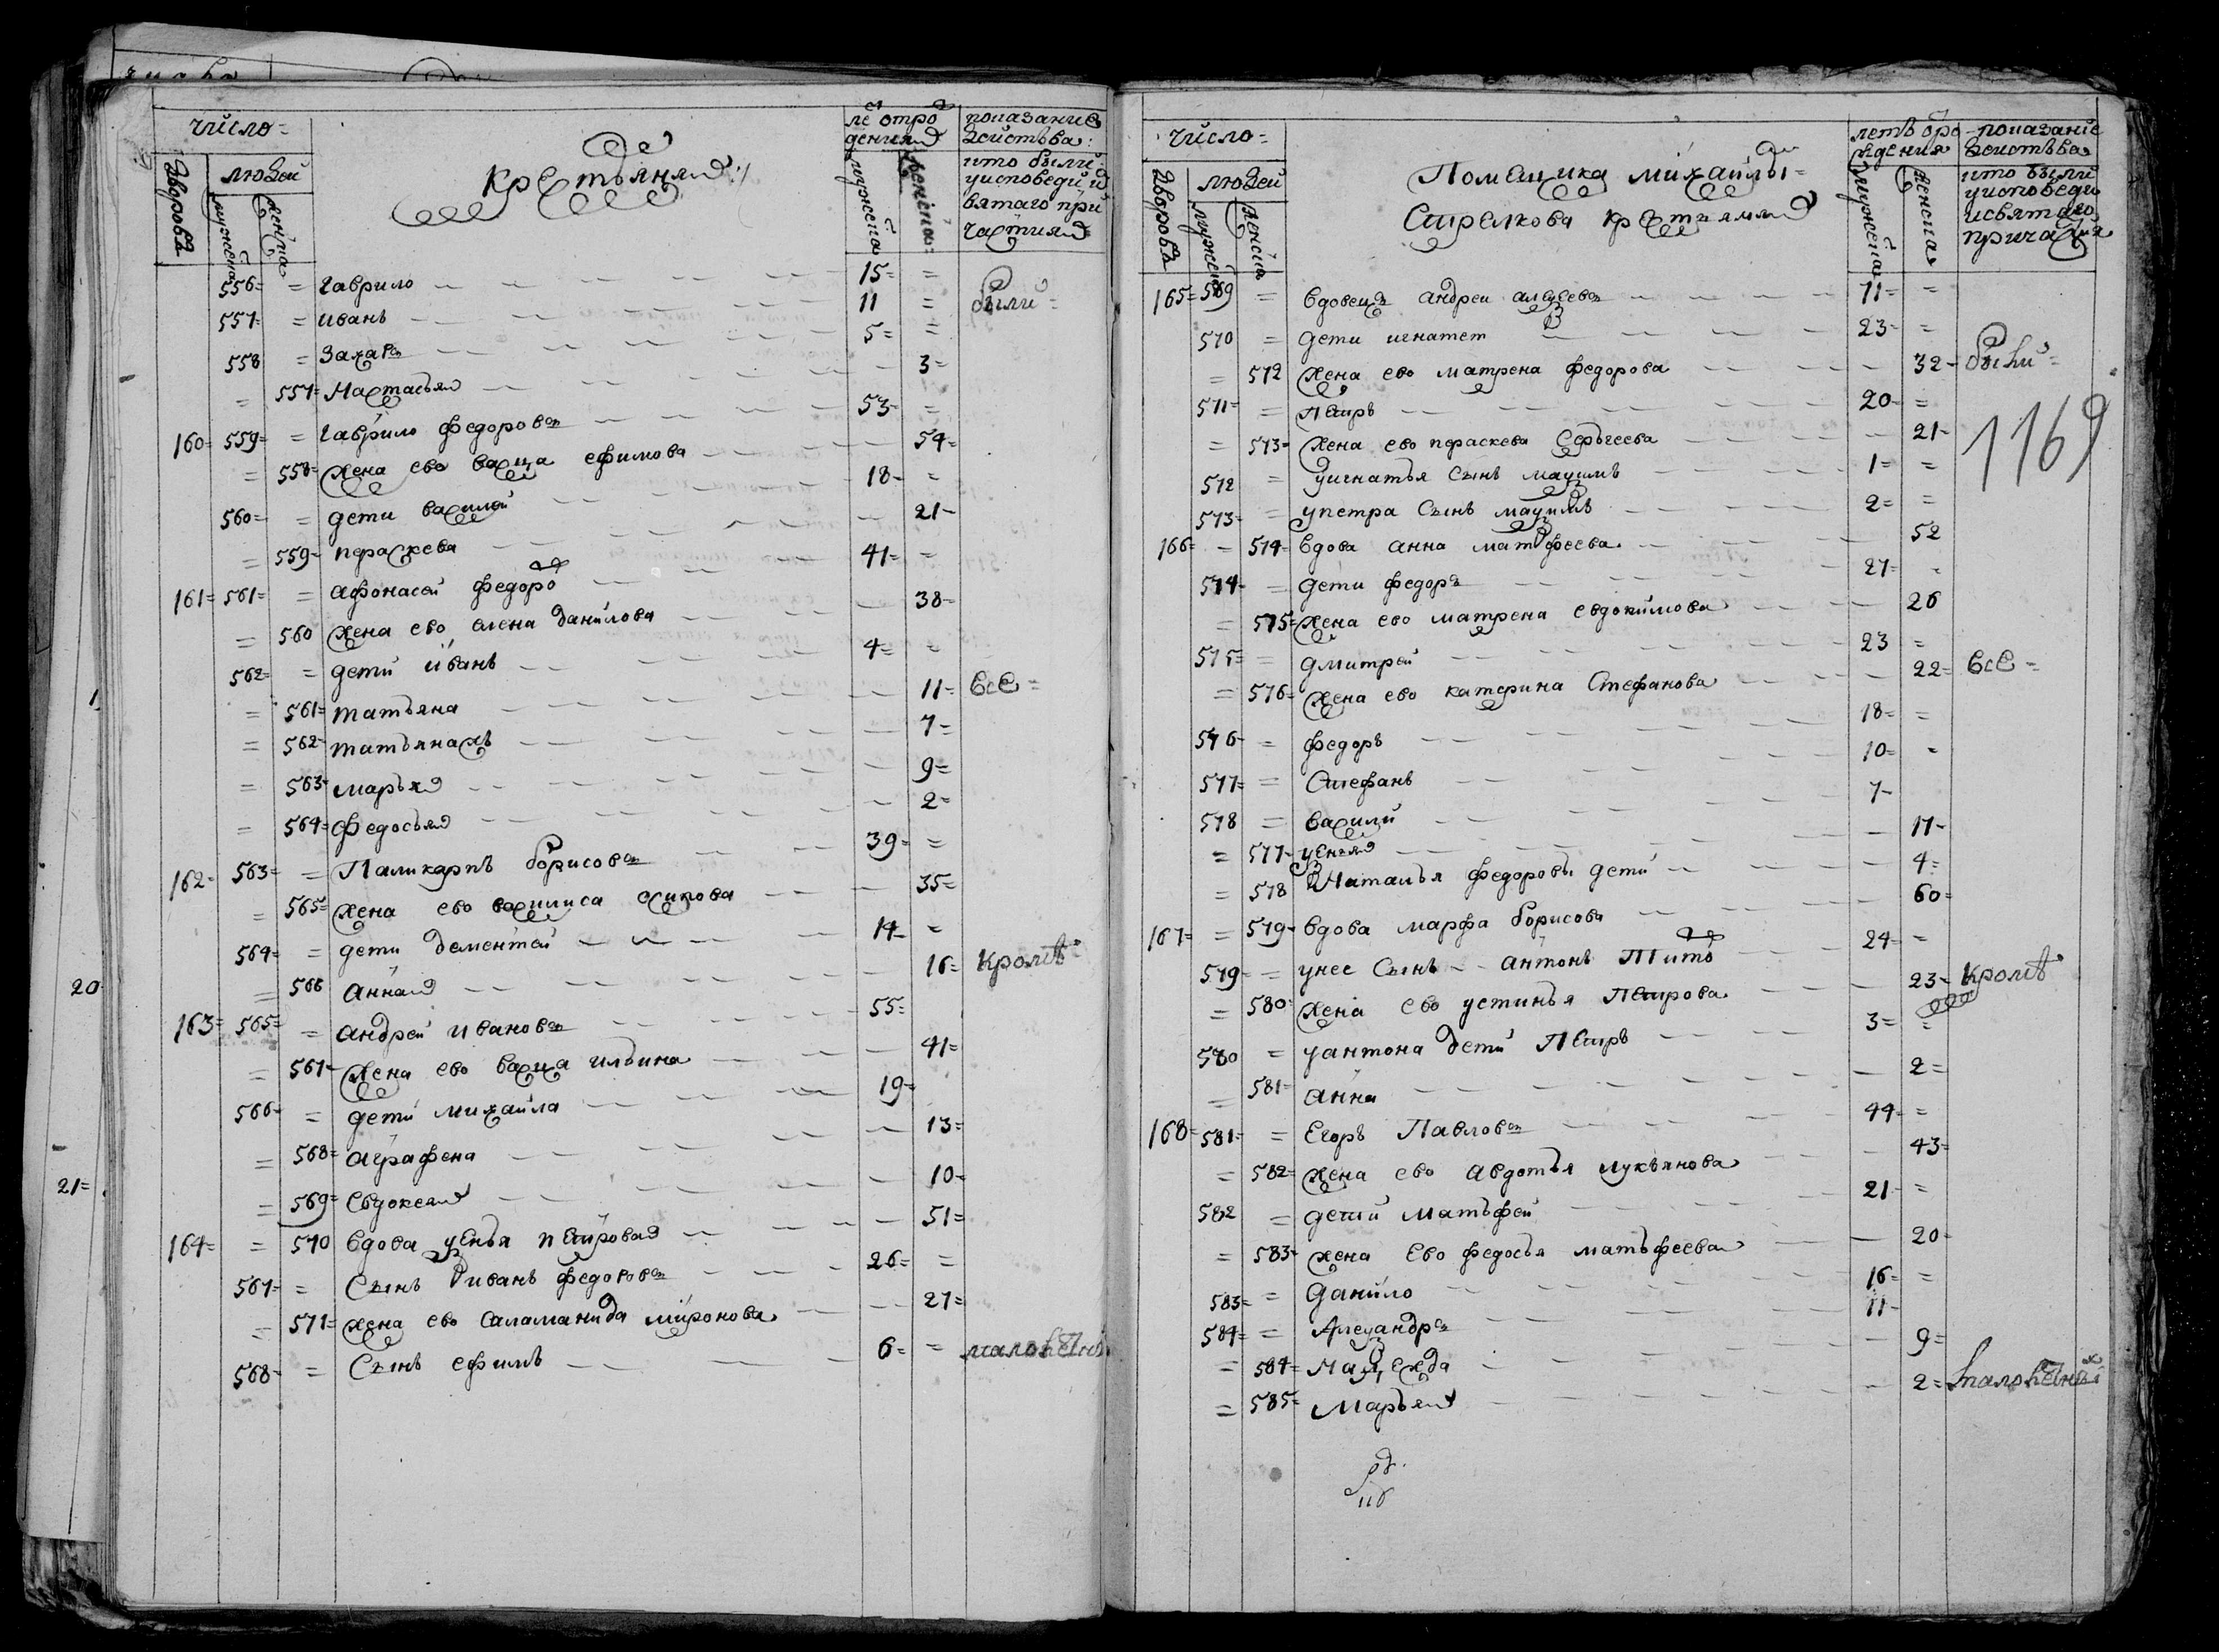 число=
дворовъ
людей
мужеска
женска
крестьяня
ле отро
дения
мужеска
женска
показание
действа:
кто были
у исповеди и
святаго при
частия
556= = Гаврило 15= =
были=
557= = иванъ 11 =
558 = Захаръ 5= =
= 557= Настасья 3=
160= 559= = гаврило федоровъ 53= =
= 558= жена ево васса ефимова 54=
560= = дети василей 18= =
= 559= параскева 21=
161= 561= = афонасей федоро 41= =
= 560 жена ево елена данилова 38=
562= = дети иванъ 4= =
= 561= татьяна 11= все=
= 562= татьянажъ 7=
= 563= марья 9=
= 564= федосья 2=
162= 563= = Паликарпъ борисовъ 39= =
= 565= жена ево василиса осипова 35=
564= = дети дементей 14= =
= 566 анна 16= кроме
163= 565= = андрей ивановъ 55=
= 567= жена ево васса ильина 41=
566= = дети михайла 19=
= 568= аграфена 13=
= 569= Евдокея 10=
164= = 570 вдова уенья петрова 51=
567= = Сынъ иванъ федоровъ 26= =
= 571= жена ево саламанида миронова 27=
568= = Сынъ ефимъ 6= = малолетн
число=
дворовъ
людей
мужеска
женска
Помещика михайлы=
Стрелкова крестьяня
летъ оро
ждения
мужеска
женска
показание
действа
кто были
у исповеди
и святаго
причастия
165= 569 = вдовецъ андреи алексеевъ 71= =
570 = дети игнатеи 23= =
= 572 жена ево матрена федорова 32= были=
571= = петръ 20= =
1169
= 573= жена ево параскева Сергеева 21=
572 = у игнатья сынъ максимъ 1= =
573= = у петра Сынъ максимъ 2= =
166= = 574= вдова анна матфеева 52
574= = дети федоръ 27= =
= 575= жена ево матрена евдокимова 26
575= = дмитрей 23 =
= 576= жена ево катерина Стефанова 22= все=
576= = федоръ 18= =
577= = Стефанъ 10= =
578 = василий 7=
= 577= уенья 17=
= 578 Наталья федоровы дети 4=
167= = 579= вдова марфа борисова 60=
579= = у нее Сынъ антонъ Тито 24= =
= 580= жена ево устинья Петрова 23= кроме
580 = у антона дети Петръ 3= =
= 581= анна 2=
168= 581= = Егоръ Павловъ 44= =
= 582= жена ево авдотья лукьянова 43=
582 = дети матьфей 21= =
= 583= жена Ево федосья матьфеева 20=
583= = данило 16= =
584= = Александръ 11=
= 584= Надежда 9=
= 585= Марья 2= малолетный
20
21=